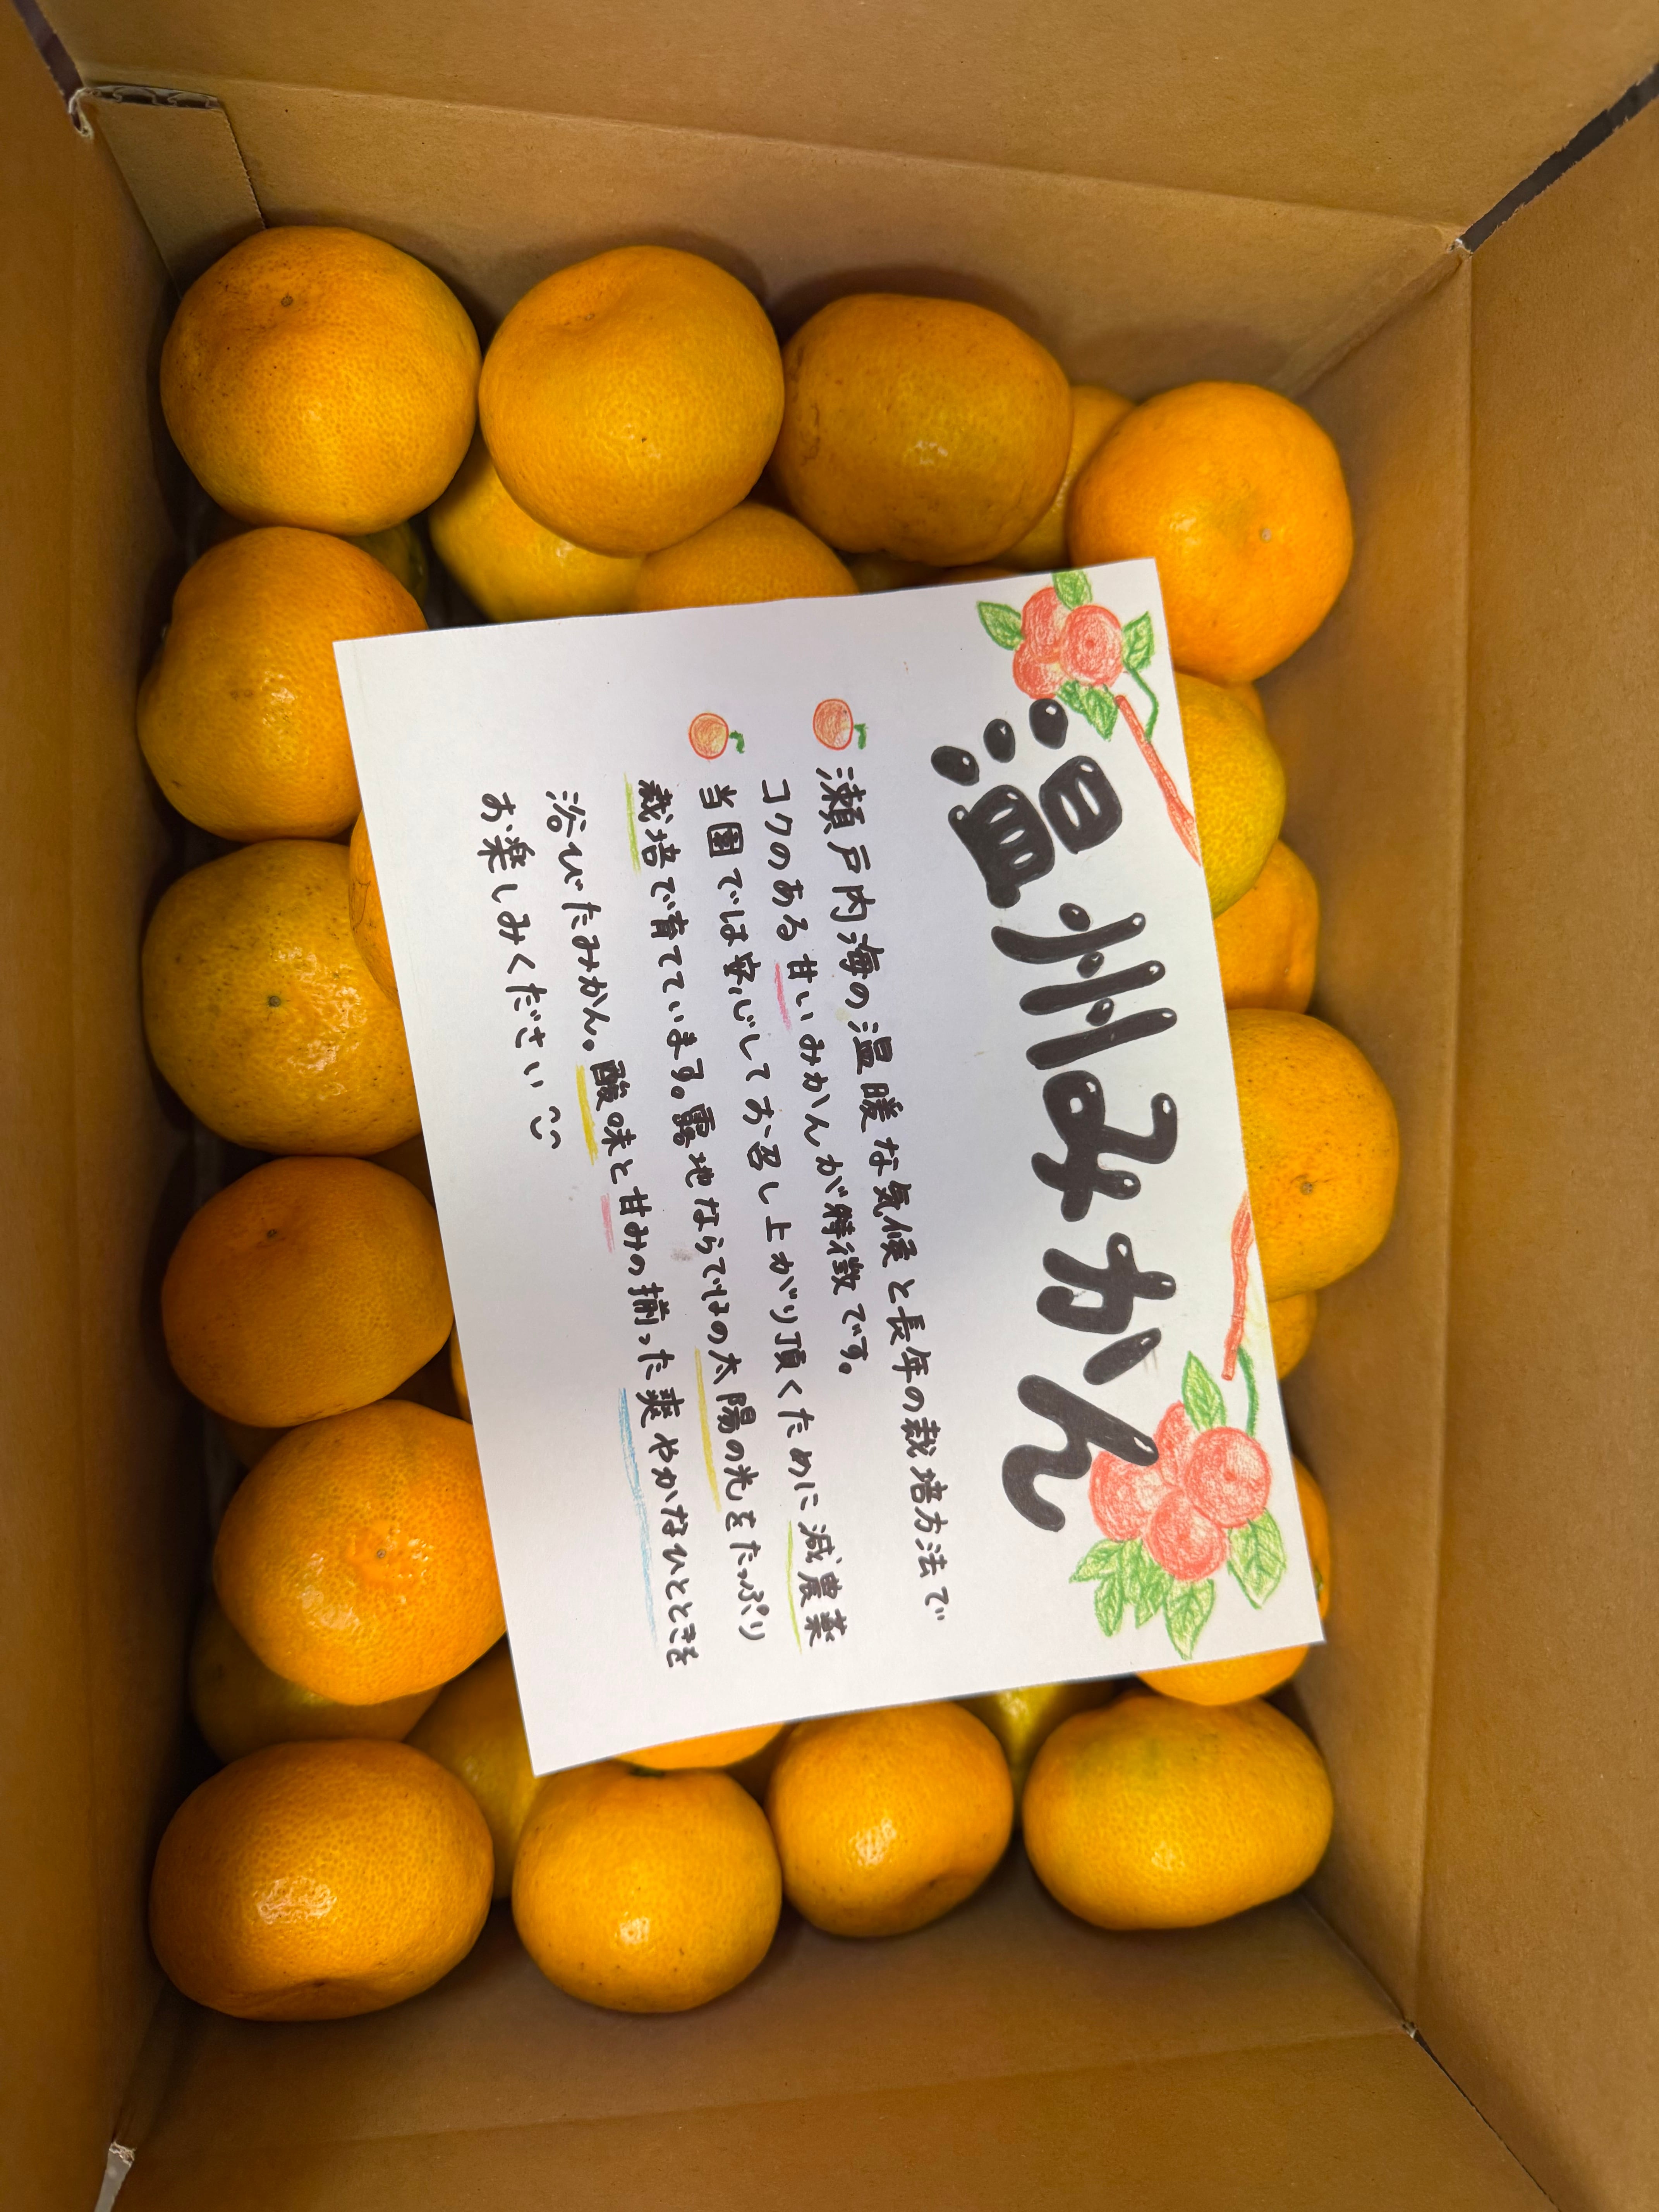 温州みかん
瀬戸内海の温暖な気候と長年の栽培方法で
コクのある甘いみかんが特徴です。
当園では安心してお召し上がり頂くために減農薬
栽培で育てています。露地ならではの太陽の光をたっぷり
浴びたみかん。酸味と甘みの揃った爽やかなひとときを
お楽しみください